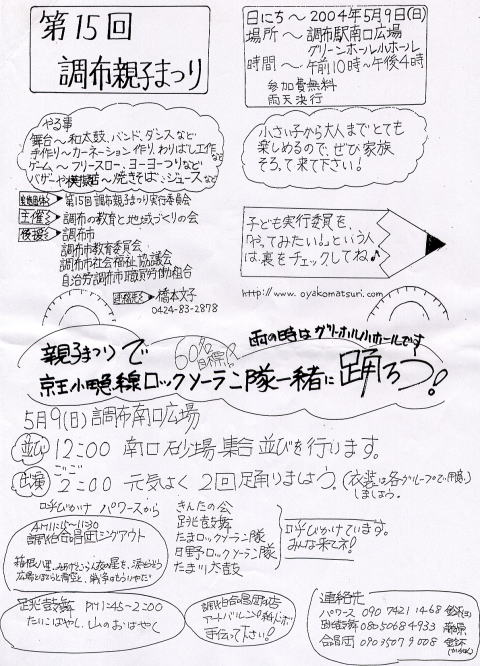 第15回
調布親子まつり
日にち～2004年5月9日(日)
場所～調布駅南口広場
グリーンホール小ホール
時間～午前10時～午後4時
参加費無料
雨天決行
やる事
舞台～和太鼓、バンド、ダンスなど
手作り～カーネーション作り、わりばし工作など
ゲーム～フリースロー、ヨーヨーつりなど
バザーや模擬店～焼きそば、ジュースなど
小さい子から大人までとても
楽しめるので、ぜひ家族
そろって来て下さい!
第15回調布親子まつり実行委員会
主催 調布の教育と地域づくりの会
後援 調布市
調布市教育委員会
調布市社会福祉協議会
自治労調布市職員労働組合
連絡先 橋本文子
0424-83-2878
子ども実行委員を、
「やってみたい。」という人
は、裏をチェックしてね♪
http://www.oyakomatsuri.com
雨の時はグリーンホール小ホールです
親子まつりで
60名目標!?
京王小田急線ロックソーラン隊一緒に踊ろう!
5月9(日)調布南口広場
並び 12:00 南口砂場集合 並びを行います。
出演 2:00 元気よく2回踊りましょう。(衣装は各グループで用意しましょう。)
呼びかけ パワースから
きんたの会
跳鼓舞
たまロックソーラン隊
日野ロックソーラン隊
たま川太鼓
呼びかけています。
みんな来てネ!
AM11:15~11:30
調布合唱団シングアウト
跳鼓舞 PM1:45-2:00
たいこばやし、山のおはやし
調布合唱団店
手伝って下さい!
連絡先
パワース 090 7421 1468
跳鼓舞 080 5068 4933
合唱団 090 3507 9008